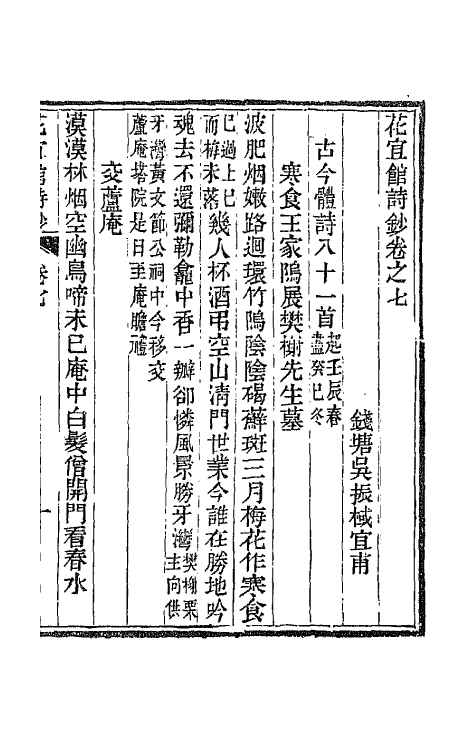 花宜館詩鈔卷之七
錢塘吳振棫宜甫
古今體詩八十一首起壬辰春盡癸巳冬
寒食王家隖展樊榭先生墓
波肥烟嫩路迴環竹隖陰陰碣蘚斑三月梅花作寒食
已過上巳而梅未落幾人杯酒弔空山淸門世業今誰在勝地吟
魂去不還彌勒龕中香一瓣卻憐風景勝牙灣樊榭栗主向供
牙灣黃文節公祠中今移交蘆庵塔院是日至庵瞻禮
交蘆庵
漠漠林烟空幽鳥啼未已庵中白髮僧開門看春水
花宜館詩鈔 卷七 一